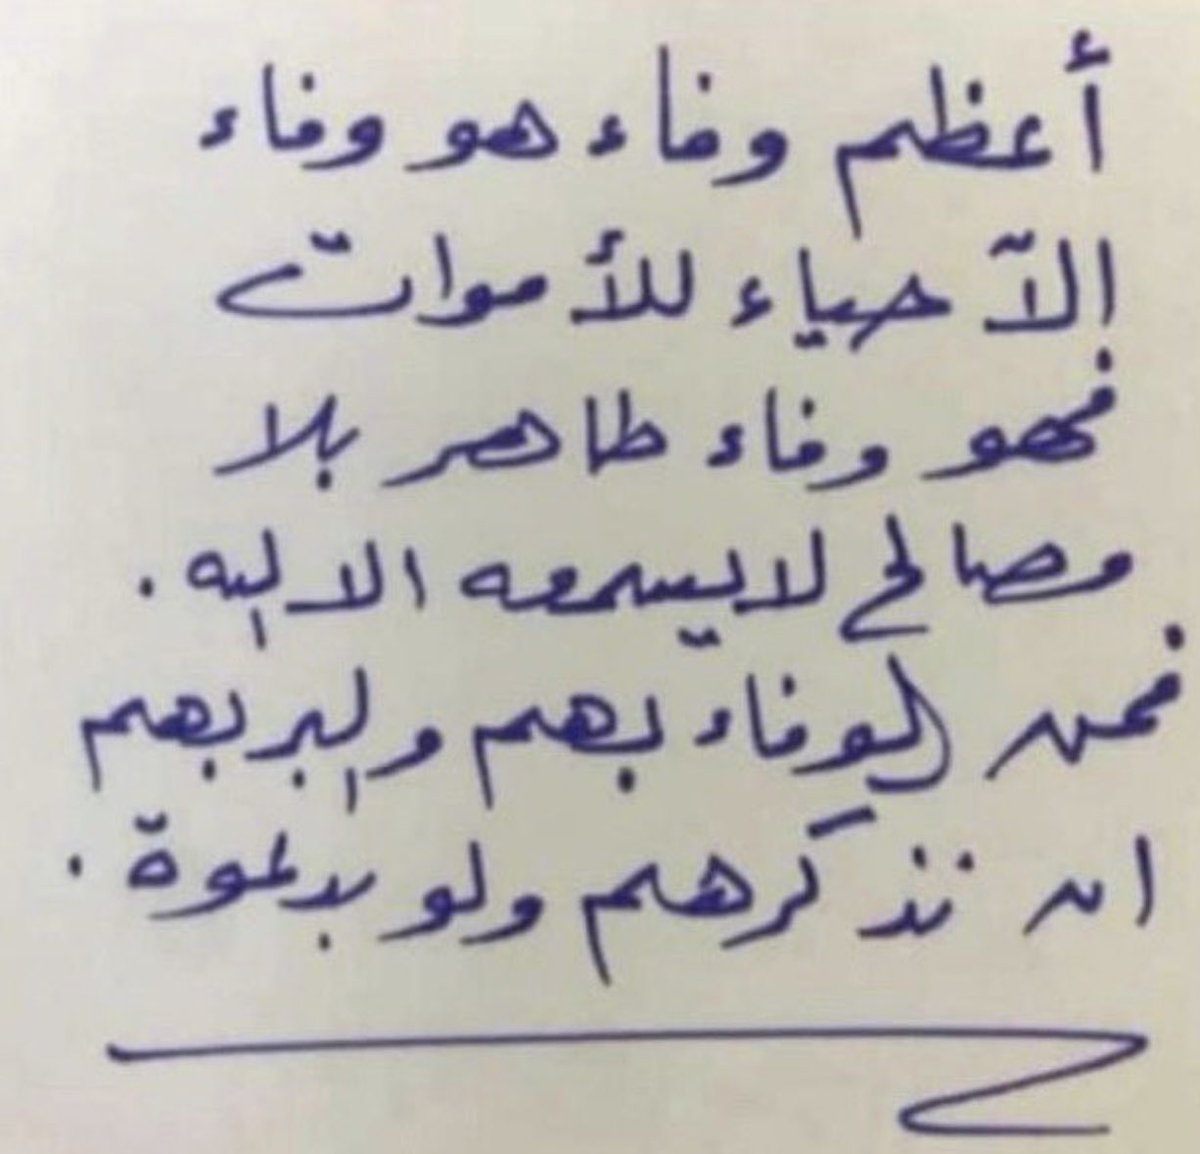 أعظم وفاء هو وفاء
الأحياء للأموات
فهو وفاء طاهر بلا
مصالح لا يسمعه الا الله .
فمن الوفاء بهم والبر بهم
ان نذكرهم ولو بدعوة .